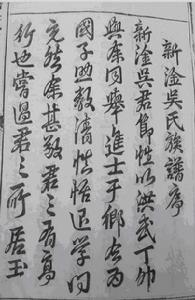 新淦吳氏族譜序
新淦吳君節性以洪武丁卯
與余同舉進士于鄉后為
國子助教清慎恬退學問
完然余甚敬君之有高
行也嘗過君之所居玉